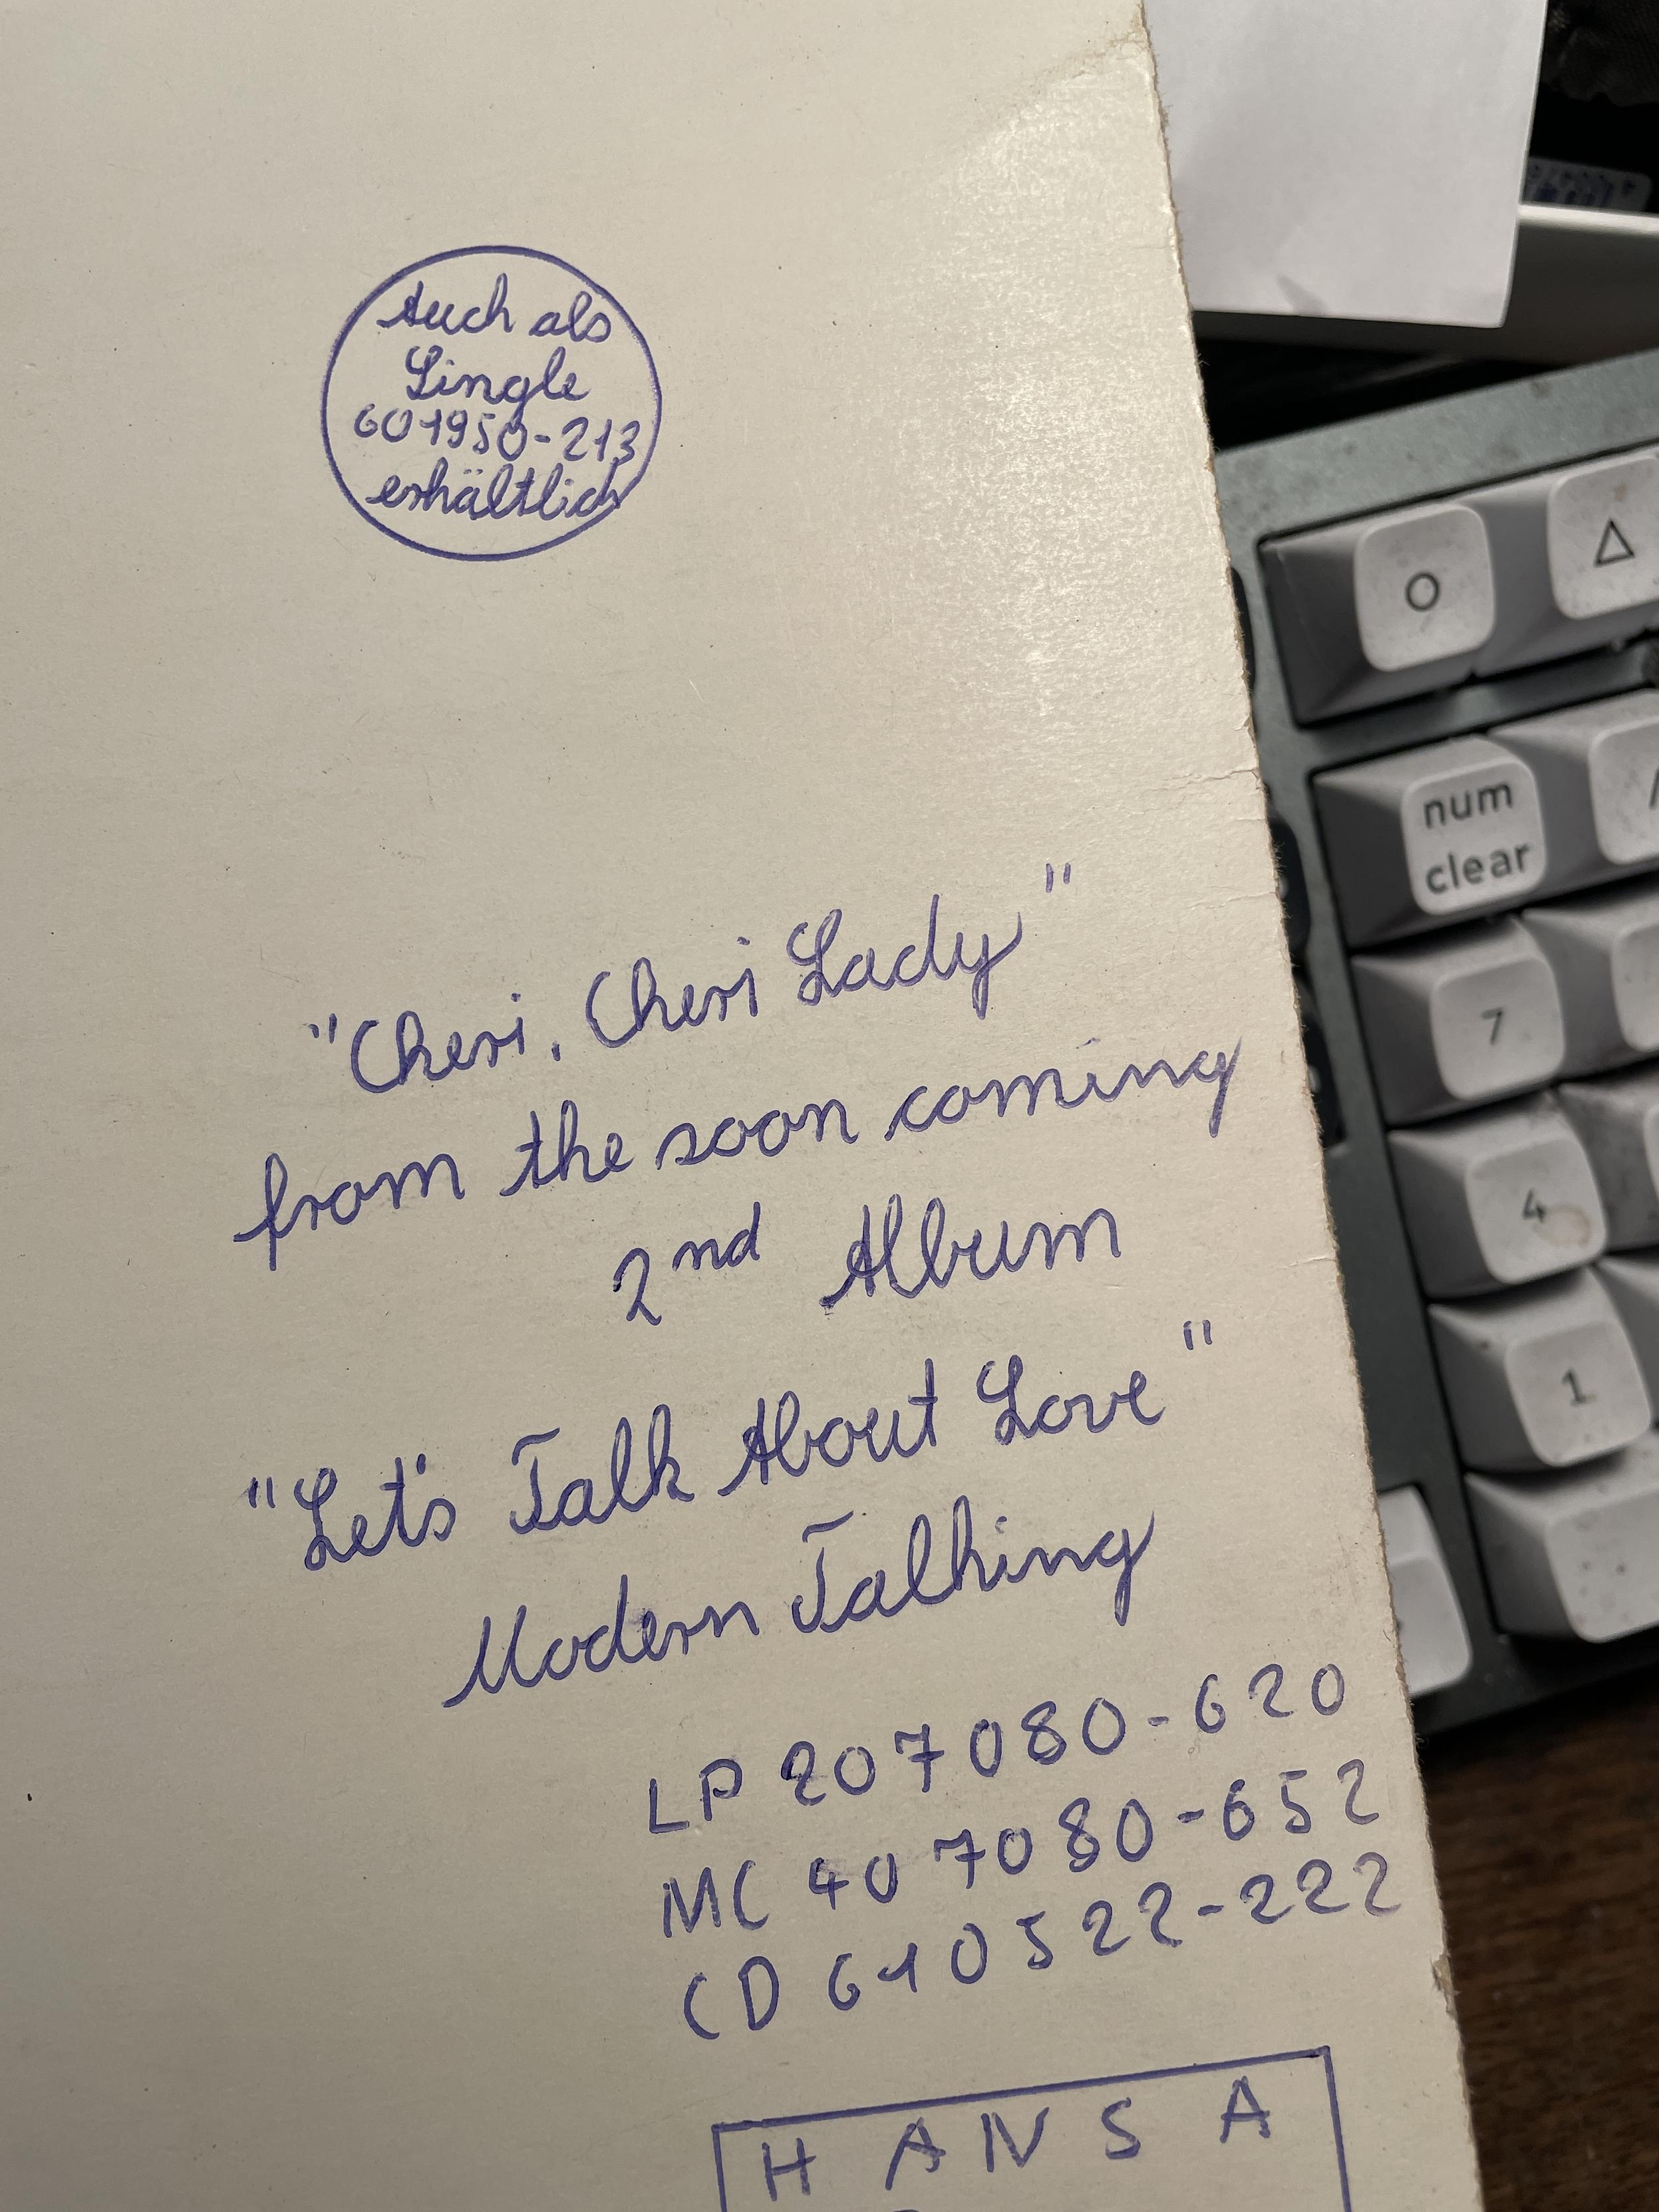 Auch als
Single
601950-213
erhältlich
"Cheri, Cheri Lady"
from the soon coming
2nd Album
"Let's Talk About Love"
Modern Talking
LP 207080-620
MC 407080-652
CD 610522-222
HANSA
num
clear
7
4
1